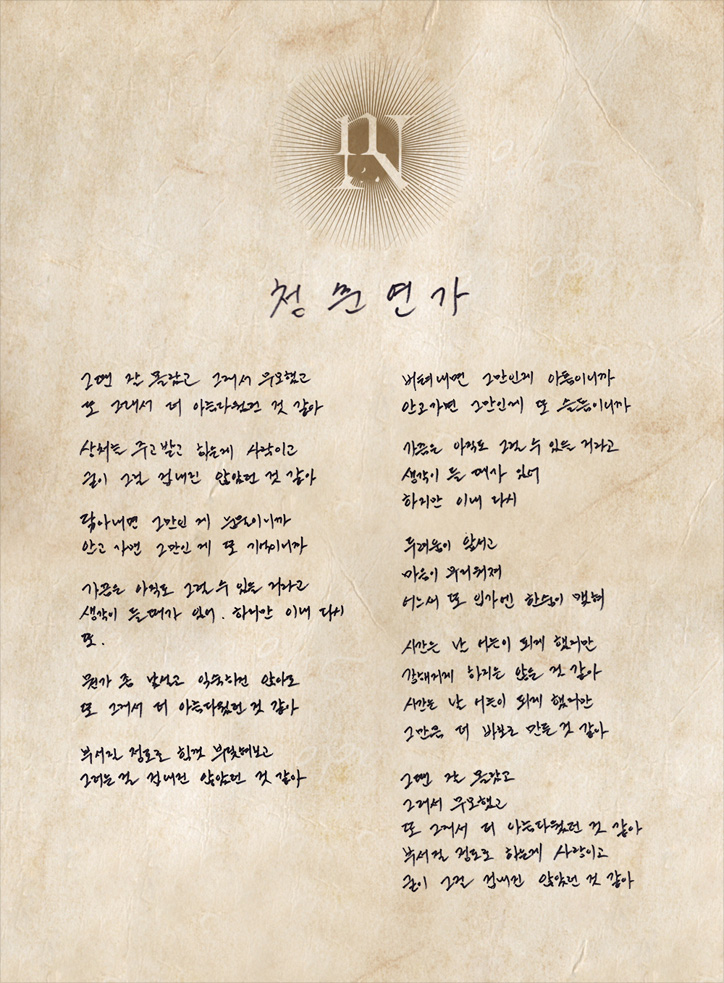 청춘연가
그땐 잘 몰랐고 그래서 무모했고
또 그래서 더 아름다웠던 것 같아
상처는 주고 받고 하는게 사랑이고
굳이 그걸 겁내진 않았던 것 같아
닳아내면 그만인 게 눈물이니까
안고 가면 그만인 게 또 기억이니까
가끔은 아직도 그럴 수 있을 거라고
생각이 들 때가 있어. 하지만 이내 다시
또.
뭔가 좀 낯설고 익숙하진 않아도
또 그래서 더 아름다웠던 것 같아
부서질 정도로 힘껏 부딪혀보고
그러는 걸 겁내진 않았던 것 같아
버텨내면 그만인게 아픔이니까
안고가면 그만인게 또 슬픔이니까
가끔은 아직도 그럴 수 있을 거라고
생각이 들 때가 있어
하지만 이내 다시
두려움이 앞서고
마음이 무거워져
어느새 또 입가엔 한숨이 맺혀
시간은 난 어른이 되게 했지만
강해지게 하지는 않은 것 같아
시간은 난 어른이 되게 했지만
그만큼 더 바보로 만든 것 같아
그땐 잘 몰랐고
그래서 무모했고
또 그래서 더 아름다웠던 것 같아
부서질 정도로 하는게 사랑이고
굳이 그걸 겁내진 않았던 것 같아